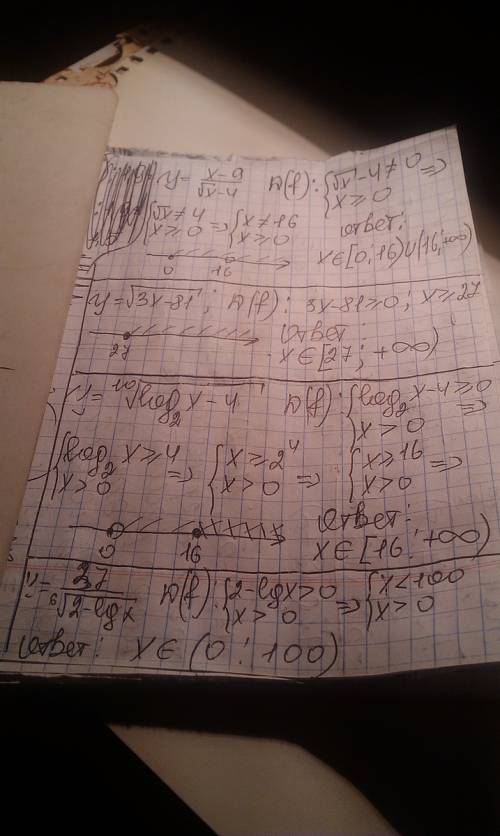 y = x-9/√x-4 D(f): {√x - 4 ≠ 0 x ≥ 0 =>
{√x ≠ 4 x ≥ 0 => {x ≠ 16 x ≥ 0 ответ:
0 16 x ∈ [0; 16) ∪ (16; +∞)
y = √3x-81; D(f): 3x-81 ≥ 0; x ≥ 27
27 Ответ:
x ∈ [27; +∞)
y = ¹⁰√log₂ x - 4 D(f): {log₂ x - 4 ≥ 0 x > 0 =>
{log₂ x ≥ 4 x > 0 => {x ≥ 2⁴ x > 0 => {x ≥ 16 x > 0 =>
0 16 Ответ:
x ∈ [16; +∞)
y = 37/⁶√2-lg x D(f): {2-lg x > 0 x > 0 => {x < 100 x > 0
Ответ: x ∈ (0; 100)